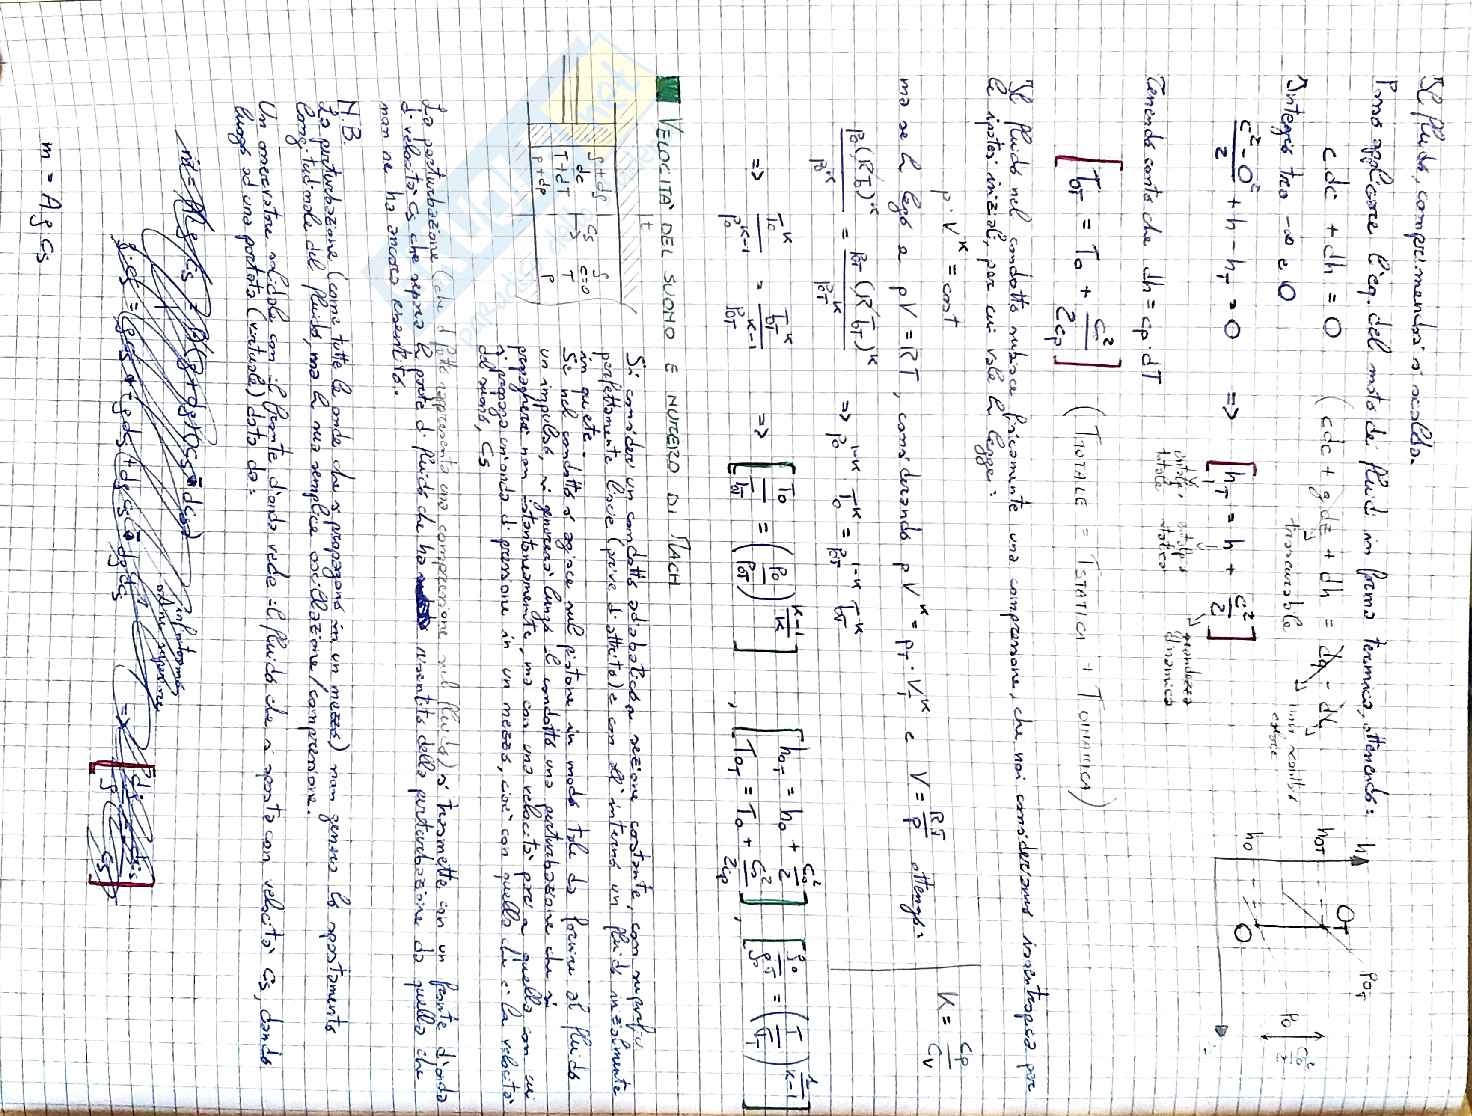 Il fluido, comprimendosi si scalda.
Posso applicare l'eq. del moto dei fluidi in forma termica, ottenendo:
cdc + dh = 0 (cdc + gdz + dh = dq - dl
trascurabile
Integro tra -∞ e 0
c² - 0² / 2 + h - hT = 0 => [hT = h + c²/2]
entalpia totale
entalpia statica
Tenendo conto che dh = cp·dT
[T0T = T0 + c²/2cp] (TTOTALE = TSTATICA + TDINAMICA)
h
h0T
h0
0T
0
P0T
P0
c0²/2
Il fluido nel condotto subisce fisicamente una compressione, che noi consideriamo isoentropica per
le ipotesi iniziali, per cui vale la legge:
p·V^K = cost
K = cp/cv
ma se la lego a pV = RT, considerando pV^K = pT·VT^K e V = RT/p ottengo:
p0(RT0)^K / p0^K = p0T(RT0T)^K / p0T^K => p0^1-K T0^K = p0T^1-K T0T^K
=> T0^K / p0^K-1 = T0T^K / p0T^K-1 => [T0/T0T = (p0/p0T)^K-1/K] , [h0T = h0 + c0²/2
T0T = T0 + c0²/2cp] , [ρ0/ρ0T = (T/TT)^1/K-1]
VELOCITÀ DEL SUONO E NUMERO DI MACH
t
ρ+dρ cs ρ
dc c=0
T+dT T
p+dp p
Si consideri un condotto adiabatico a sezione costante, con superfici
perfettamente liscie (prive di attrito) e con all'interno un fluido inizialmente
in quiete.
Se nel condotto si agisce sul pistone in modo tale da fornire al fluido
un impulso, si genererà lungo il condotto una perturbazione che si
propagherà non istantaneamente, ma con una velocità pari a quella con cui
si propaga un'onda di pressione in un mezzo, cioè con quella che è la velocità
del suono, cs
La perturbazione (che di fatto rappresenta una compressione sul fluido) si trasmette con un fronte d'onda
di velocità cs che separa la parte di fluido che ha risentito della perturbazione da quella che
non ne ha ancora risentito.
N.B.
La perturbazione (come tutte le onde che si propagano in un mezzo) non genera lo spostamento
longitudinale del fluido, ma la sua semplice oscillazione/compressione.
Un osservatore solidale con il fronte d'onda vede il fluido che si sposta con velocità cs, dando
luogo ad una portata (virtuale) data da:
infinitesimo
ordine superiore
m = Aρcs